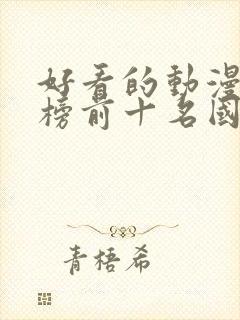 好看的動漫
榜前十名國
青梧希